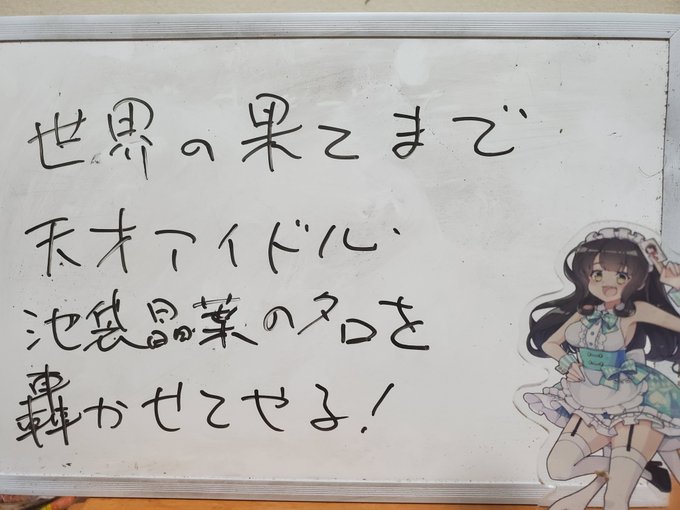 世界の果てまで
天才アイドル・
池袋晶葉の名を
轟かせてやる!